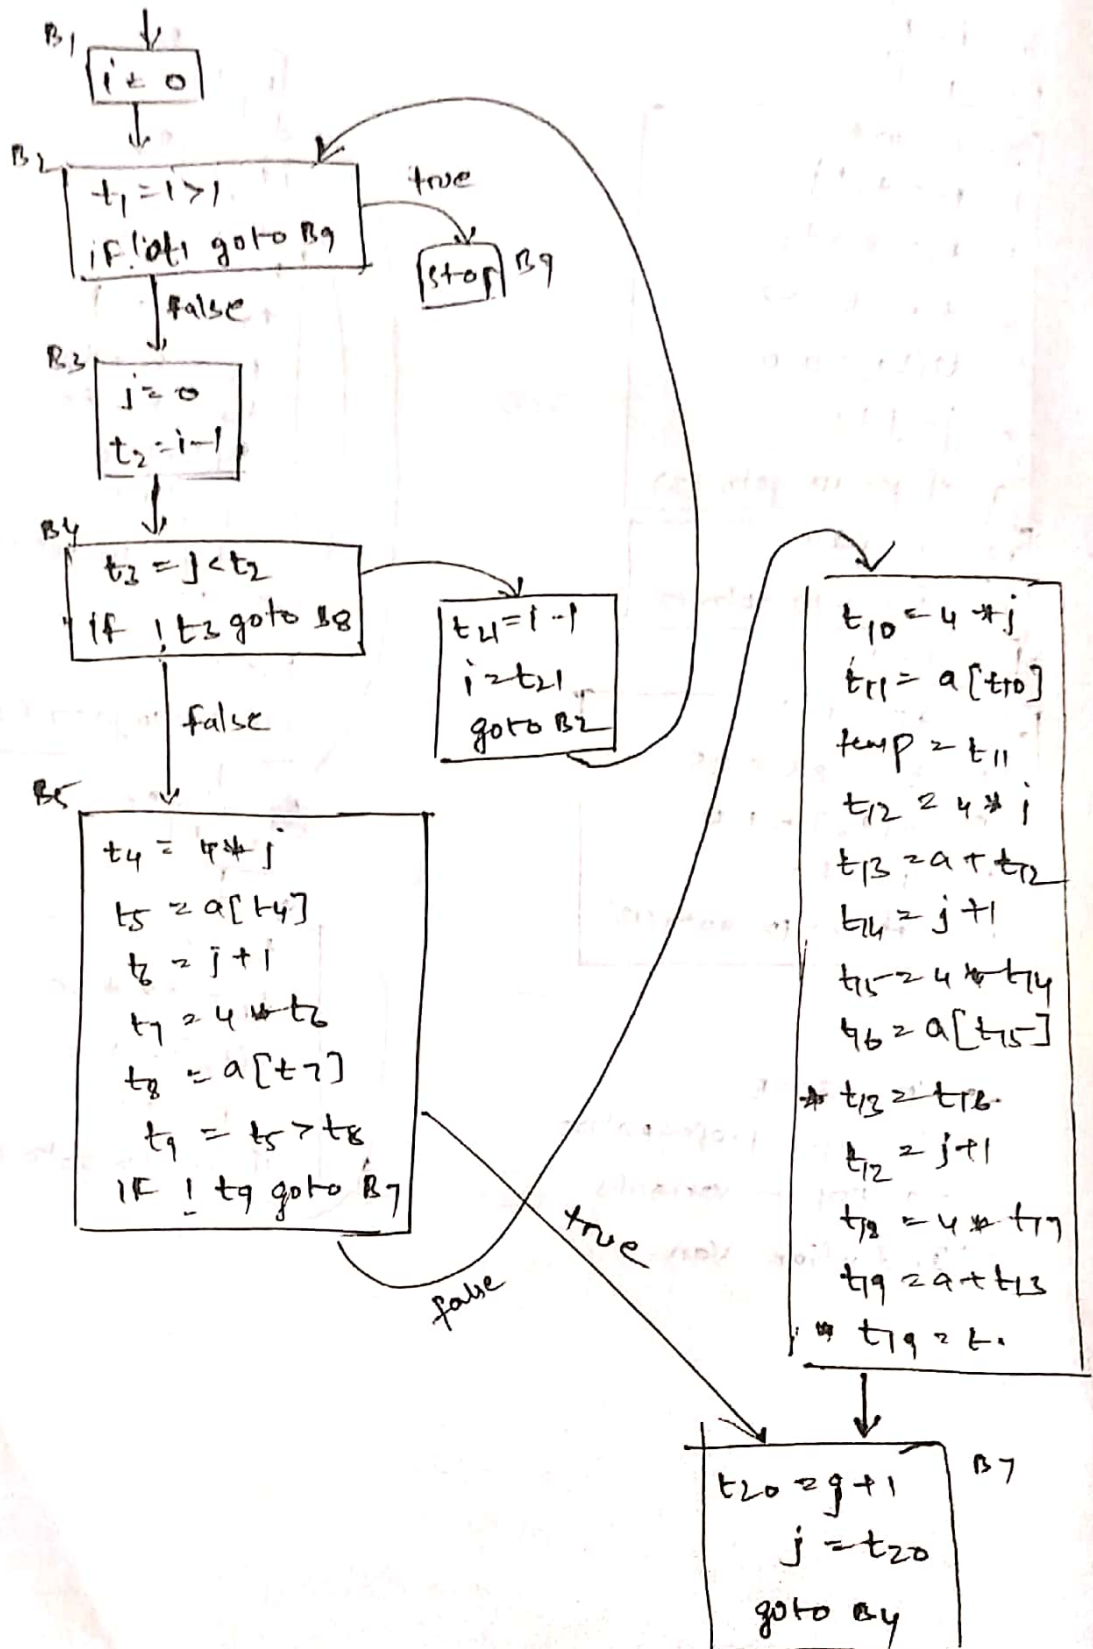 B1
i = 0
B2
t1 = i > 1
if ! t1 goto B9
true
stop
B9
false
B3
j = 0
t2 = i - 1
B4
t3 = j < t2
if ! t3 goto B8
t21 = i - 1
i = t21
goto B2
false
B5
t4 = 4 * j
t5 = a[t4]
t6 = j + 1
t7 = 4 * t6
t8 = a[t7]
t9 = t5 > t8
IF ! t9 goto B7
true
false
t10 = 4 * j
t11 = a[t10]
temp = t11
t12 = 4 * j
t13 = a + t12
t14 = j + 1
t15 = 4 * t14
t16 = a[t15]
* t13 = t16
t12 = j + 1
t18 = 4 * t17
t19 = a + t13
* t19 = t
B7
t20 = j + 1
j = t20
goto B4